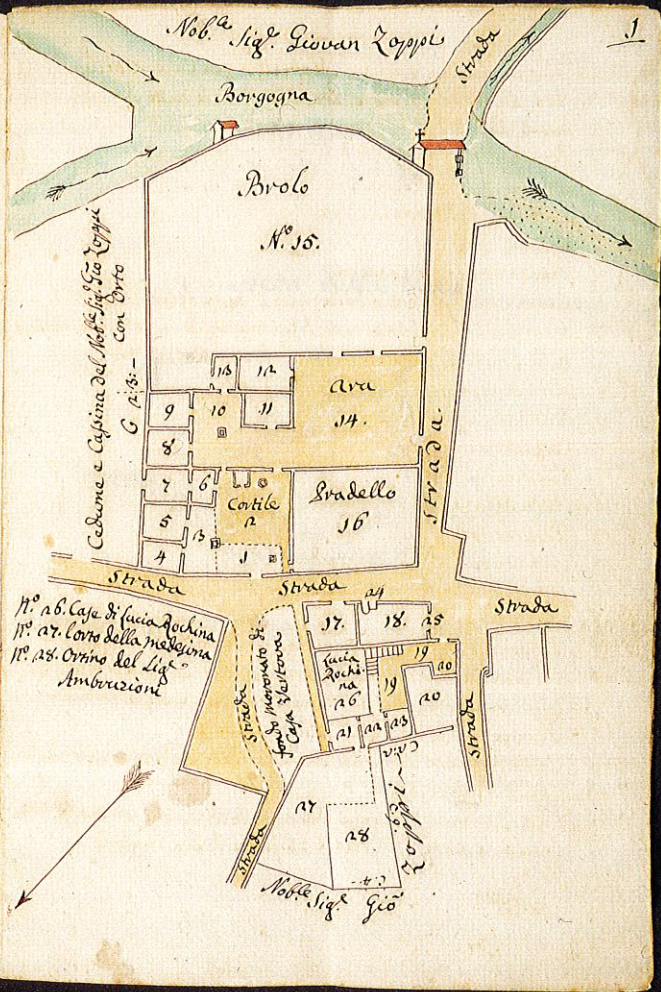 1
Nob.le Sig.r Giovan Zoppi
Strada
Borgogna
Brolo
N.o 15.
del Nob.le Sig.r Gio Zoppi
con Orto
13
12
Ara
14.
9
10
11
8
7
6
Cortile
2
Pradello
16
Strada.
5
3
4
1
Strada
Strada
Strada
N.o 26. Case di Lucia Rochina
N.o 27. l'orto della medesima
N.o 28. Ortino del Sig.r
17.
24
18.
25
19
20
Lucia
Rochi=
na
26
19
20
21
22
23
Strada
fondo moronato di
Casa Vertova
Strada
Zoppi
27
28
Strada
Nob.le Sig.r Gio